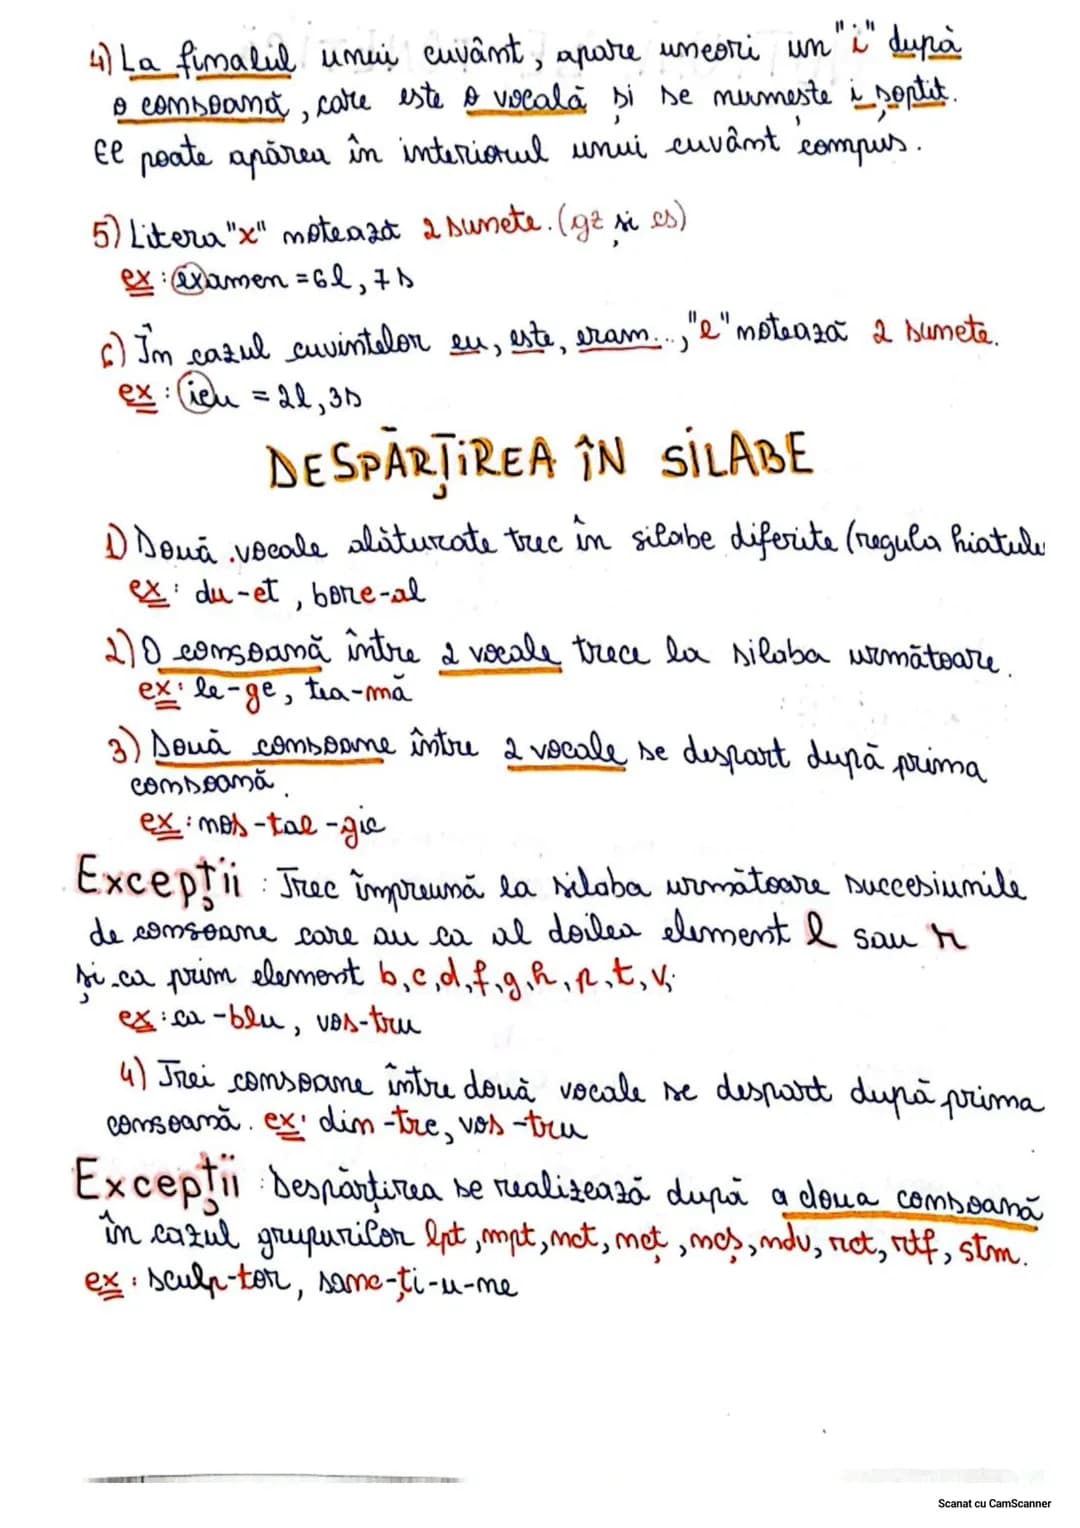 4) La finalul unui cuvânt, apare uneori un "i" după
o consoană, care este o vocală și se numește i șoptit.
El poate apărea în interiorul unui cuvânt compus.
5) Litera "x" notează 2 sunete. (gz și cs)
ex: examen = 6l, 7s
6) În cazul cuvintelor eu, este, eram..., "e" notează 2 sunete.
ex: ieu = 2l, 3s
DESPĂRȚIREA ÎN SILABE
1) Două vocale alăturate trec în silabe diferite (regula hiatulu
ex: du-et, bore-al
2) O consoană între 2 vocale trece la silaba următoare.
ex: le-ge, tea-mă
3) Două consoane între 2 vocale se despart după prima
consoană.
ex: nos-tal-gic
Excepții: Trec împreună la silaba următoare succesiunile
de consoane care au ca al doilea element l sau r
și ca prim element b, c, d, f, g, h, p, t, v;
ex: ca-blu, vos-tru
4) Trei consoane între două vocale se despart după prima
consoană. ex: din-tre, vos-tru
Excepții: Despărțirea se realizează după a doua consoană
în cazul grupurilor lpt, mpt, nct, ncț, ncș, ndv, rct, rtf, stm.
ex: sculp-tor, sanc-ți-u-ne
Scanat cu CamScanner